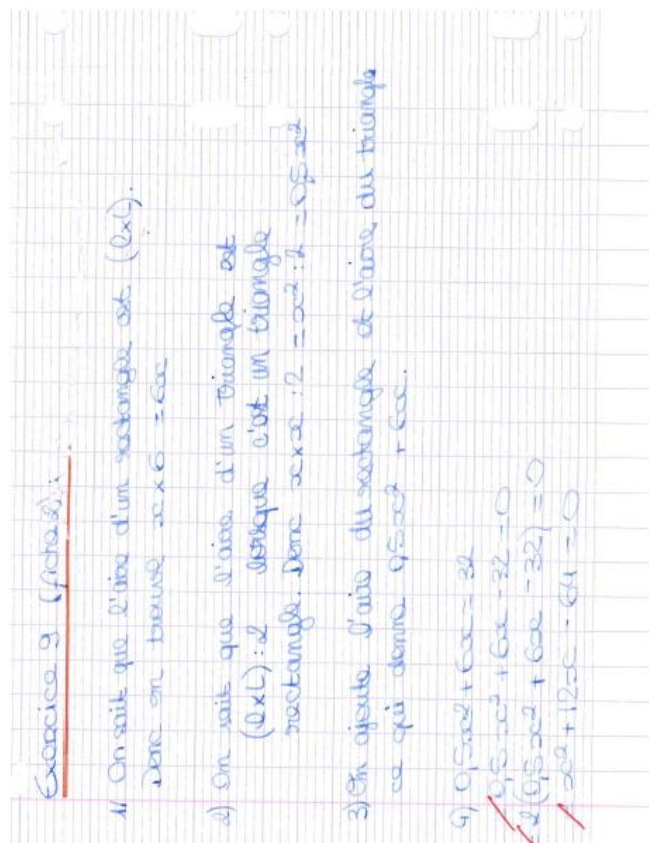 Exercice 9 (fiche 2) :
1/ On sait que l'aire d'un rectangle est (l×L).
Donc on trouve x × 6 = 6x
2) On sait que l'aire d'un triangle est
(l×L) : 2 lorsque c'est un triangle
rectangle. Donc x × x : 2 = x² : 2 = 0,5x²
3) On ajoute l'aire du rectangle et l'aire du triangle
ce qui donne 0,5x² + 6x.
4) 0,5x² + 6x = 32
0,5x² + 6x - 32 = 0
2(0,5x² + 6x - 32) = 0
x² + 12x - 64 = 0